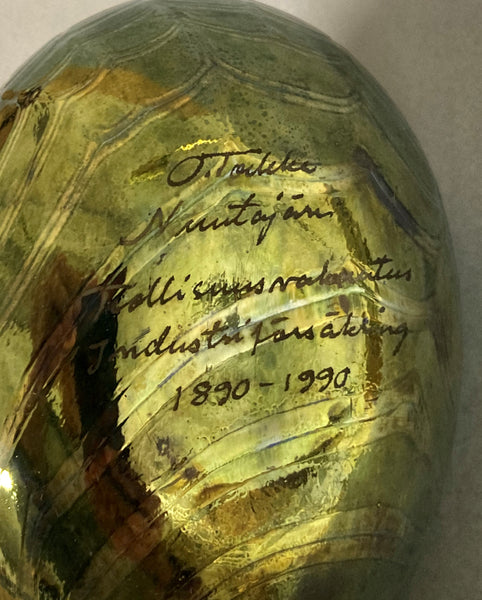 O. Toikka
Nuutajärvi
Teollisuusvakuutus
Industriförsäkring
1890-1990